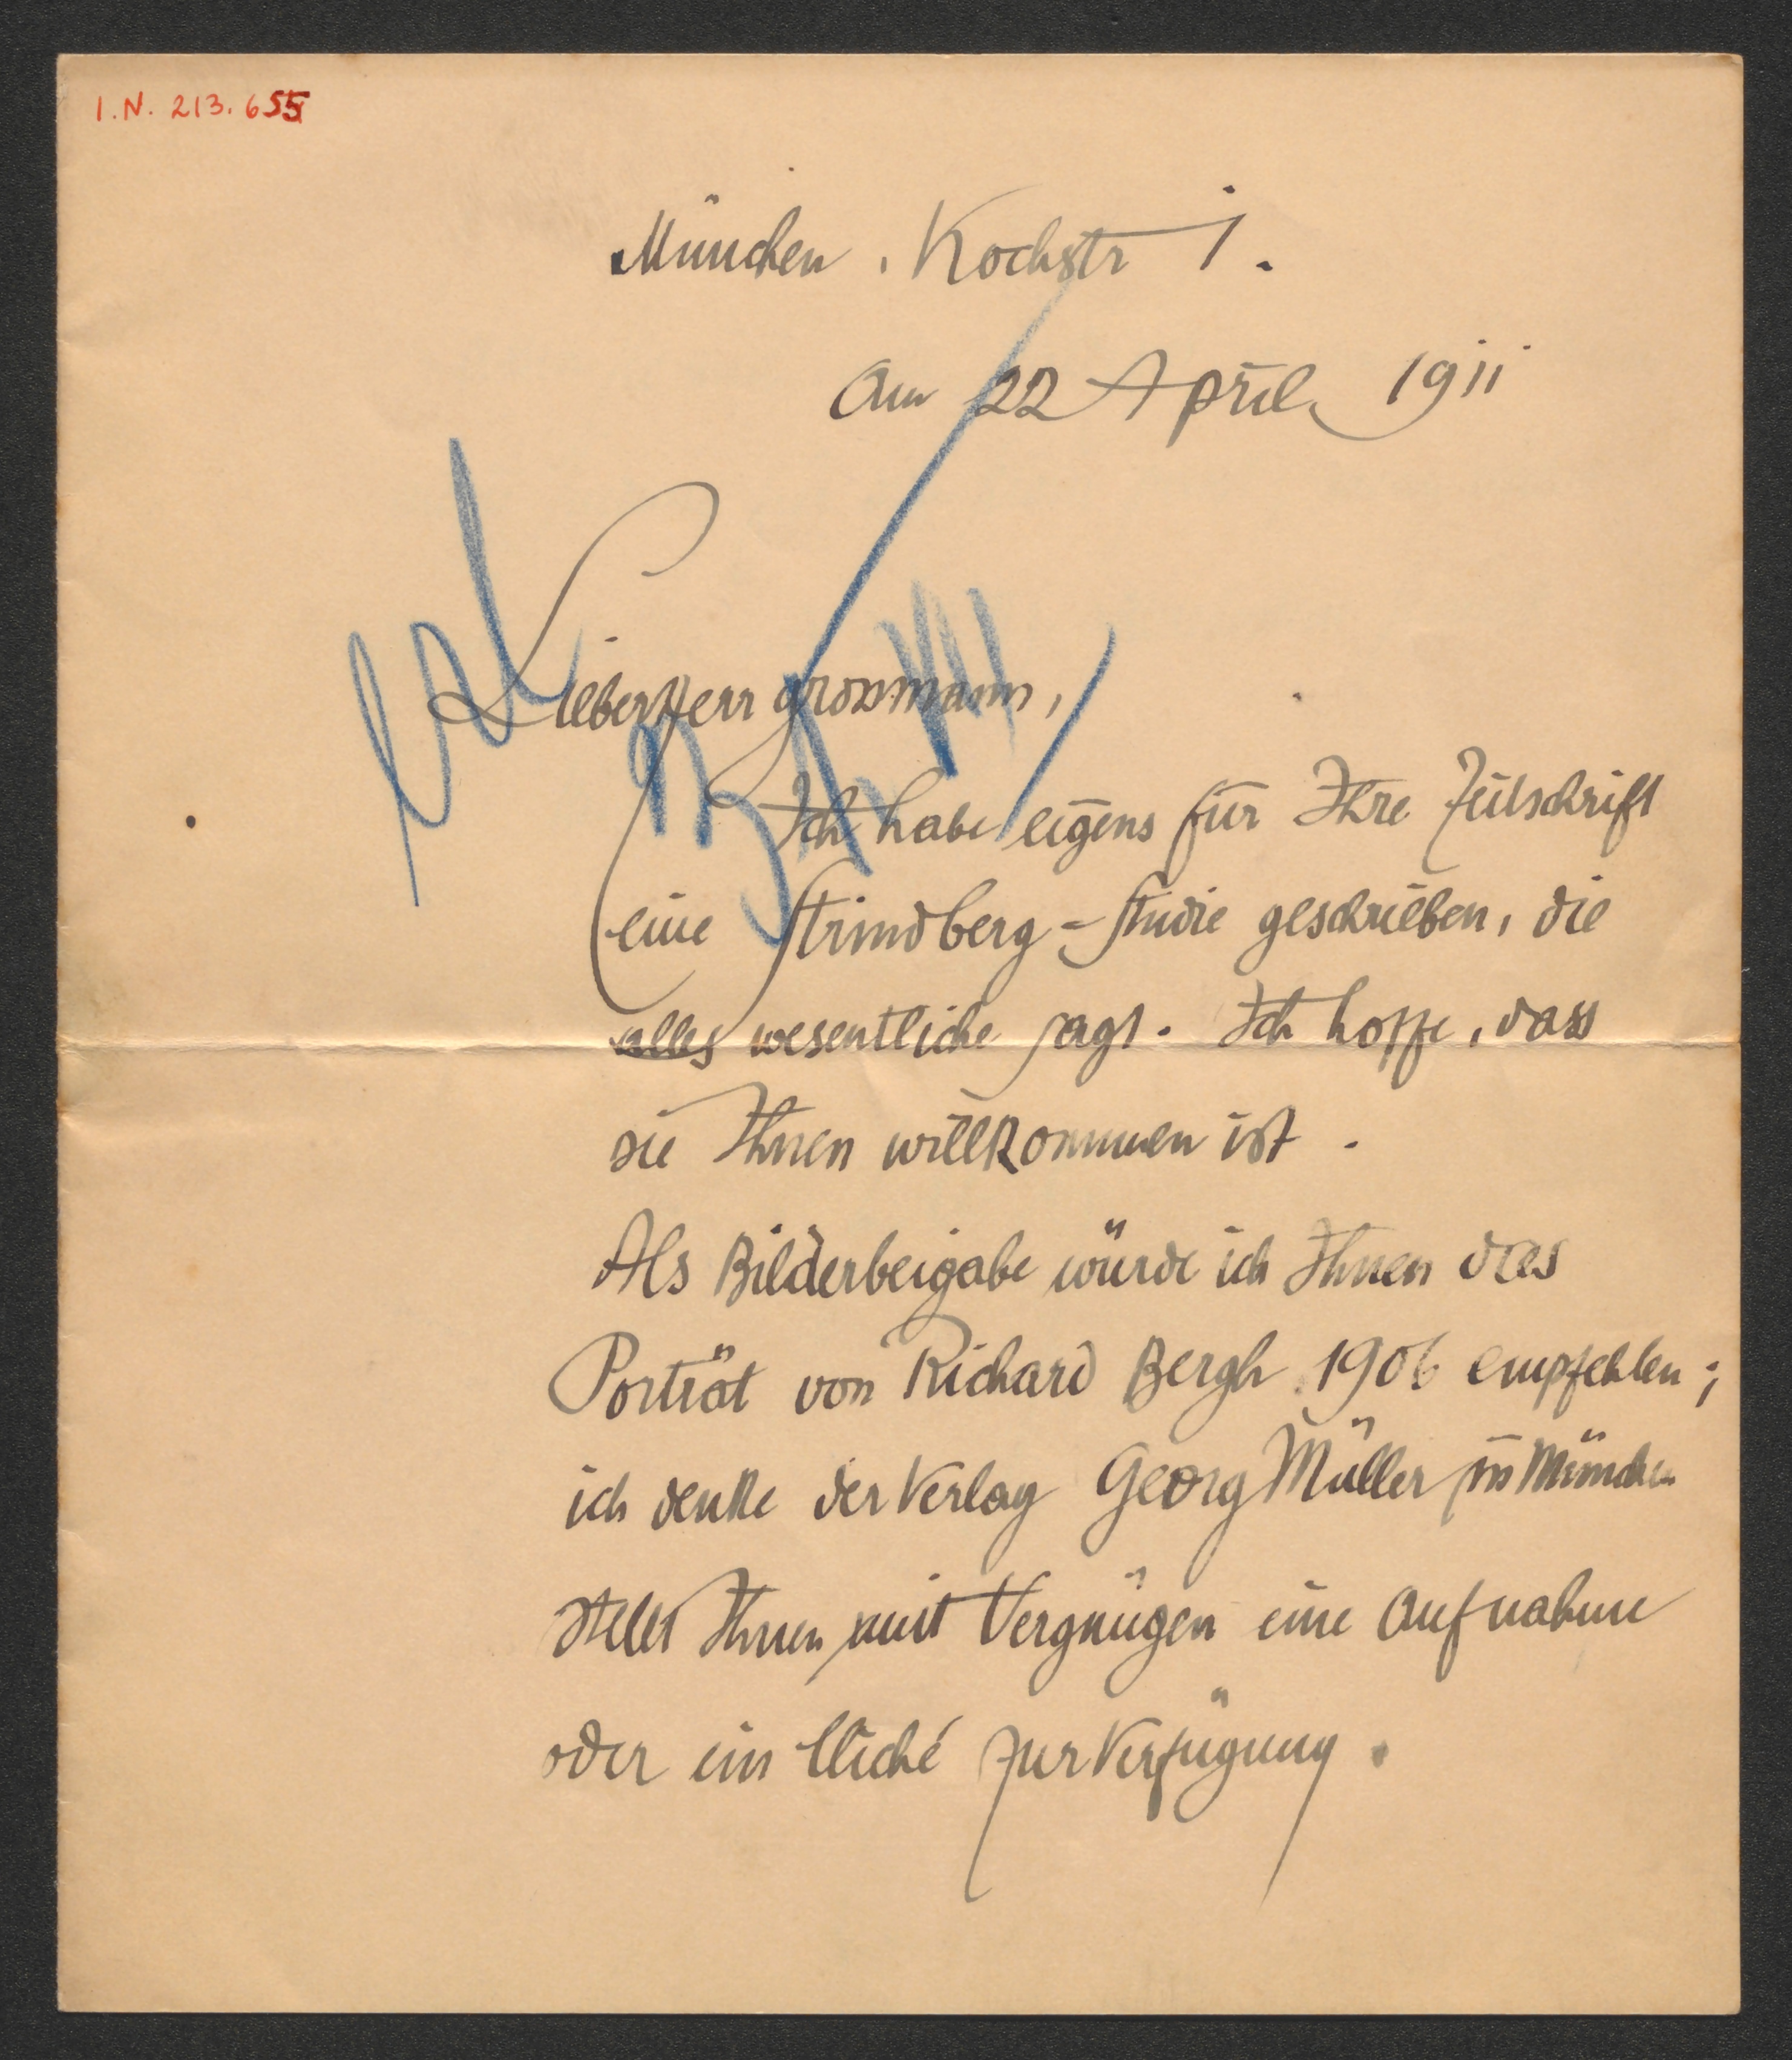 I.N. 213.655
München, Kochstr 1.
Am 22 April 1911
Lieber Herr Grossmann,
Ich habe eigens für Ihre Zeitschrift
eine Strindberg-Studie geschrieben, die
alles wesentliche sagt. Ich hoffe, dass
sie Ihnen willkommen ist.
Als Bilderbeigabe würde ich Ihnen das
Porträt von Richard Bergh 1906 empfehlen;
ich denke der Verlag Georg Müller in München
stellt Ihnen mit Vergnügen eine Aufnahme
oder ein Cliché zur Verfügung.